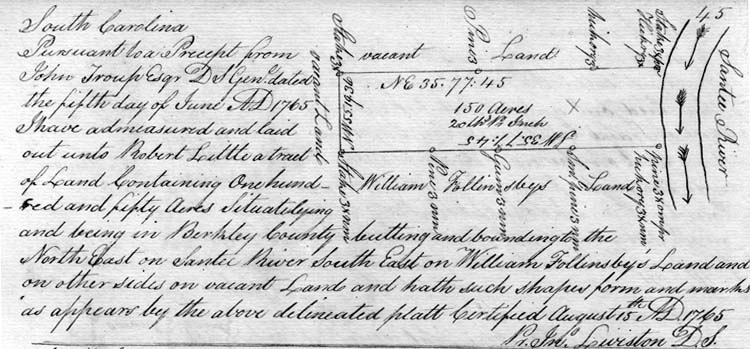 45
South Carolina
Pursuant to a Precept from
John Troup Esqr D S Genl dated
the fifth day of June AD 1765
I have admeasured and laid
out unto Robert Little a tract
of Land Containing One hund-
-red and fifty Acres Situate lying
and being in Berkley County butting and bounding to the
North East on Santee River South East on William Follinsbys Land and
on other sides on vacant Land and hath such shapes form and marks
as appears by the above delineated platt Certified August 15th AD 1765
Pr. Jno Liviston D. S.
vacant Land
Pine 3
hickory 3
Stake 3x
vacant Land
NE 35. 77:45
150 Acres
20 Ch Pr Inch
SW 35 77:45
Stake 3x nm
William Follinsbys Land
Pine 3 nm
Gum 3 nm
pine 3 nm
hickory 3x nm
Santee River